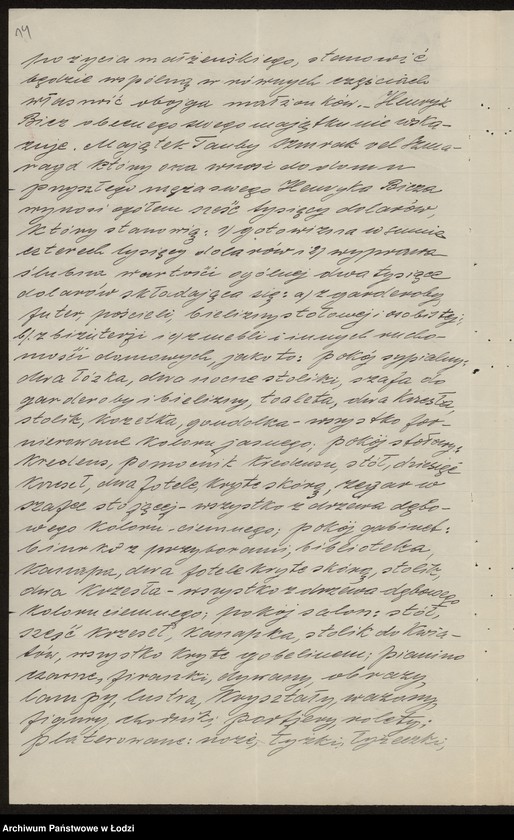 14
pożycia małżeńskiego, stanowić
będzie wspólną w równych częściach
własność obojga małżonków. Henryk
Bicz obecnego swego majątku nie wska-
zuje. Majątek Tauby Szmrak vel Szma-
ragd który ona wnosi do domu
przyszłego męża swego Henryka Bicza
wynosi ogółem sześć tysięcy dolarów,
który stanowią: 1) gotowizna w sumie
czterech tysięcy dolarów i 2) wyprawa
ślubna wartości ogólnej dwa tysiące
dolarów składająca się: a) z garderoby
futer, pościeli, bielizny stołowej i osobistej;
b) z biżuterji i c) z mebli i innych rucho-
mości domowych, jako to: pokój sypialny:
dwa łóżka, dwa nocne stoliki, szafa do
garderoby i bielizny, toaleta, dwa krzesła,
stolik, kozetka, gondolka - wszystko for-
nierowane koloru jasnego. Pokój stołowy:
kredens, pomocnik kredensu, stół, dziesięć
krzeseł, dwa fotele kryte skórą, zegar w
szafce stojącej - wszystko z drzewa dębo-
wego koloru ciemnego; pokój gabinet:
biurko z przyborami, biblioteka,
kanapa, dwa fotele kryte skórą, stolik,
dwa krzesła - wszystko z drzewa dębowego
koloru ciemnego; pokój salon: stół,
sześć krzeseł, kanapka, stolik do kwia-
tów, wszystko kryte gobelinem; pianino
czarne, firanki, dywany, obrazy
lampy, lustra, kryształy, wazony,
figury, chodniki, portjery, rolety;
platerowane: noże, łyżki, łyżeczki,
Archiwum Państwowe w Łodzi